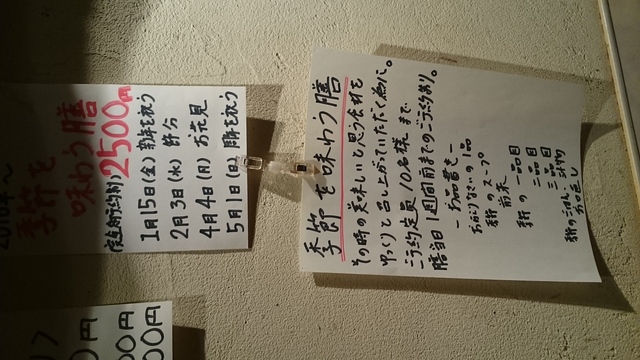 2016年～
季節を
味わう膳
(完全予約制) 2500円
1月15日(金) 新年を祝う
2月3日(水) 節分
4月4日(月) お花見
5月1日(日) 周年を祝う
季節を味わう膳
その時の美味しいと思う食材を
ゆっくりと召し上がっていただく為に。
ご予約定員10名様まで
膳当日1週間前までのご予約あり。
ーお品書きー
の1品
季節のスープ
前菜
季節の 一品目
二品目
三品目
季節のごはん、汁物
お口直し
0円
00円
00円